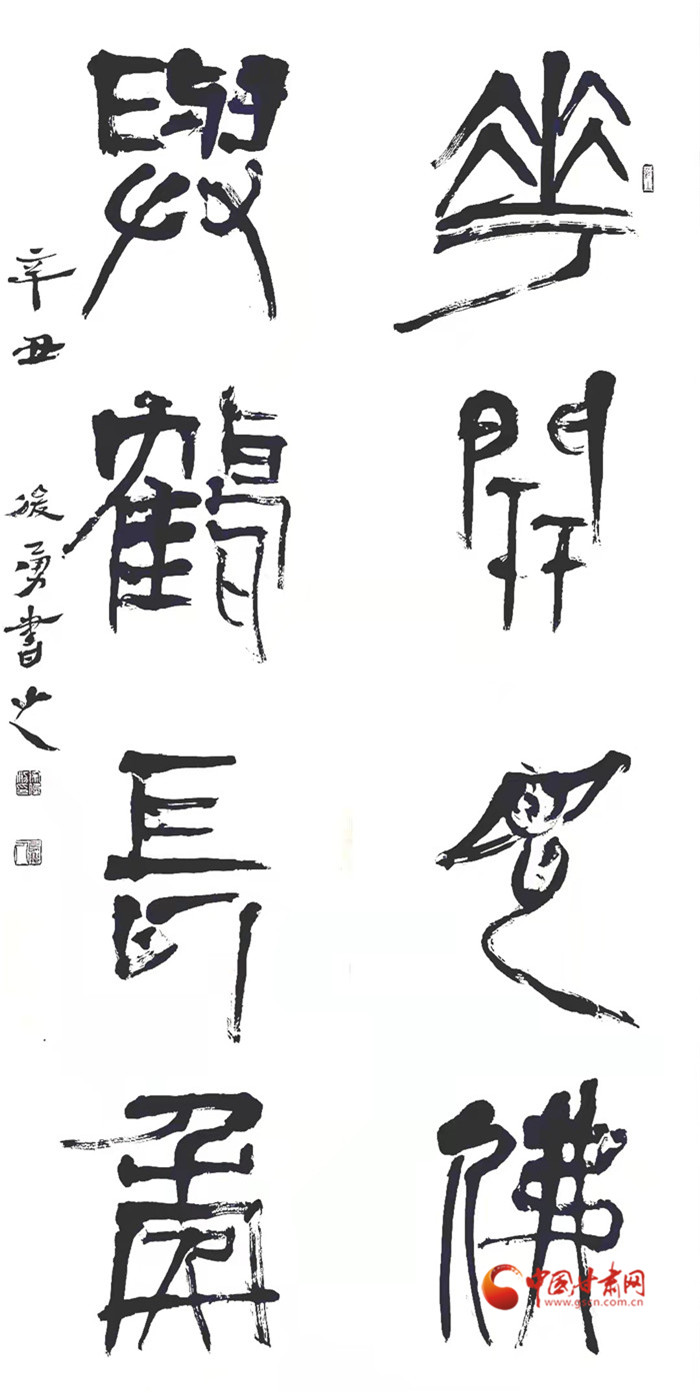 華開見佛
與鶴長壽
辛丑 俊勇書之
中国甘肃网
www.gscn.com.cn